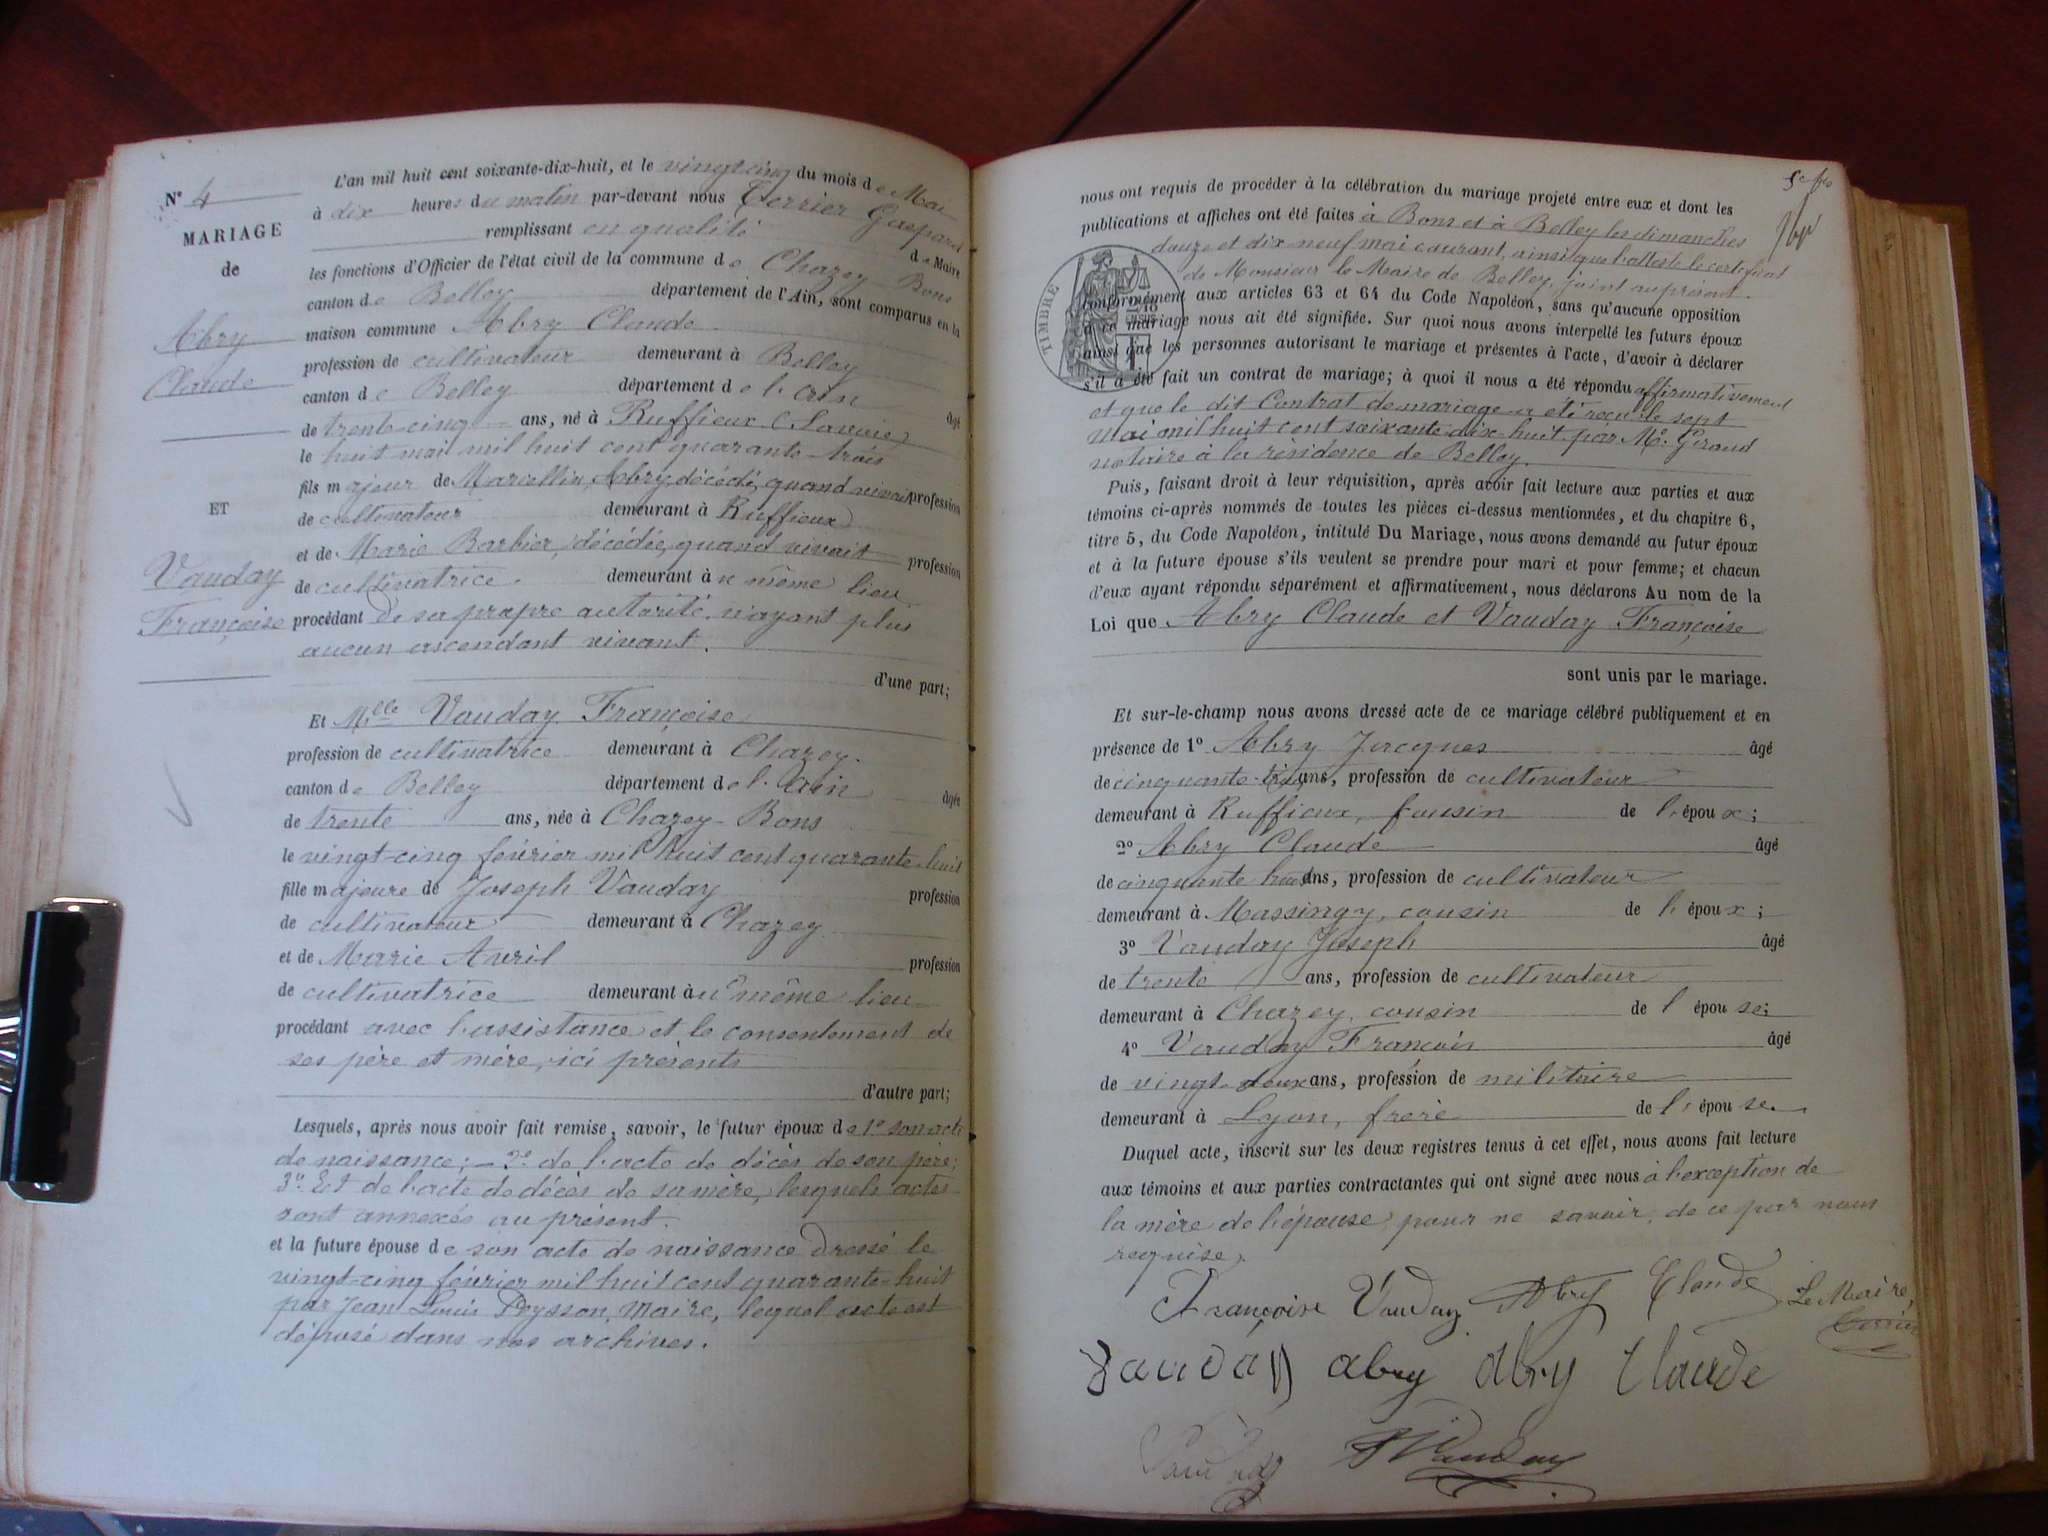 Nº 4
MARIAGE
de
Abry
Claude
ET
Vauday
Françoise
L'an mil huit cent soixante-dix-huit, et le vingt cinq du mois de Mai
à dix heures du matin par-devant nous Terrier Gaspard
remplissant en qualité de Maire
les fonctions d'Officier de l'état civil de la commune de Chazey Bons
canton de Belley département de l'Ain, sont comparus en la
maison commune Abry Claude
profession de cultivateur demeurant à Belley
canton de Belley département de l'Ain âgé
de trente-cinq ans, né à Ruffieux (Savoie)
le huit mai mil huit cent quarante-trois
fils majeur de Marcellin Abry, décédé, quand vivait profession
de cultivateur demeurant à Ruffieux
et de Marie Barbier, décédée, quand vivait profession
de cultivatrice. demeurant à u même lieu
procédant de sa propre autorité, n'ayant plus
aucun ascendant vivant.
d'une part;
Et Mlle Vauday Françoise
profession de cultivatrice demeurant à Chazey.
canton de Belley département de l'Ain âgée
de trente ans, née à Chazey-Bons
le vingt-cinq février mil huit cent quarante-huit
fille majeure de Joseph Vauday profession
de cultivateur demeurant à Chazey
et de Marie Avril profession
de cultivatrice demeurant à u même lieu
procédant avec l'assistance et le consentement de
ses père et mère, ici présents
d'autre part;
Lesquels, après nous avoir fait remise, savoir, le futur époux de 1º son acte
de naissance; – 2º de l'acte de décès de son père;
3º Et de l'acte de décès de sa mère, lesquels actes
sont annexés au présent.
et la future épouse de son acte de naissance dressé le
vingt-cinq février mil huit cent quarante-huit
par Jean Louis Peysson, Maire, lequel acte est
déposé dans nos archives.
nous ont requis de procéder à la célébration du mariage projeté entre eux et dont les
publications et affiches ont été faites à Bons et à Belley les dimanches
douze et dix-neuf mai courant, ainsi que l'atteste le certificat
de Monsieur le Maire de Belley, joint au présent.
TIMBRE
conformément aux articles 63 et 64 du Code Napoléon, sans qu'aucune opposition
à ce mariage nous ait été signifiée. Sur quoi nous avons interpellé les futurs époux
ainsi que les personnes autorisant le mariage et présentes à l'acte, d'avoir à déclarer
s'il a été fait un contrat de mariage; à quoi il nous a été répondu affirmativement
et que le dit Contrat de mariage a été reçu le sept
Mai mil huit cent soixante dix-huit par Me. Giraud
notaire à la résidence de Belley.
Puis, faisant droit à leur réquisition, après avoir fait lecture aux parties et aux
témoins ci-après nommés de toutes les pièces ci-dessus mentionnées, et du chapitre 6,
titre 5, du Code Napoléon, intitulé Du Mariage, nous avons demandé au futur époux
et à la future épouse s'ils veulent se prendre pour mari et pour femme; et chacun
d'eux ayant répondu séparément et affirmativement, nous déclarons Au nom de la
Loi que Abry Claude et Vauday Françoise
sont unis par le mariage.
Et sur-le-champ nous avons dressé acte de ce mariage célébré publiquement et en
présence de 1º Abry Jacques âgé
de cinquante-trois ans, profession de cultivateur
demeurant à Ruffieux, Cousin de l'époux;
2º Abry Claude âgé
de cinquante huit ans, profession de cultivateur
demeurant à Massingy, cousin de l'époux;
3º Vauday Joseph âgé
de trente ans, profession de cultivateur
demeurant à Chazey, cousin de l'épouse;
4º Vauday François âgé
de vingt-deux ans, profession de militaire
demeurant à Lyon, frère de l'épouse.
Duquel acte, inscrit sur les deux registres tenus à cet effet, nous avons fait lecture
aux témoins et aux parties contractantes qui ont signé avec nous à l'exception de
la mère de l'épouse, pour ne savoir, de ce par nous
requise.
Françoise Vauday Abry Claude Le Maire,
Terrier
Vauday abry Abry Claude
Vauday